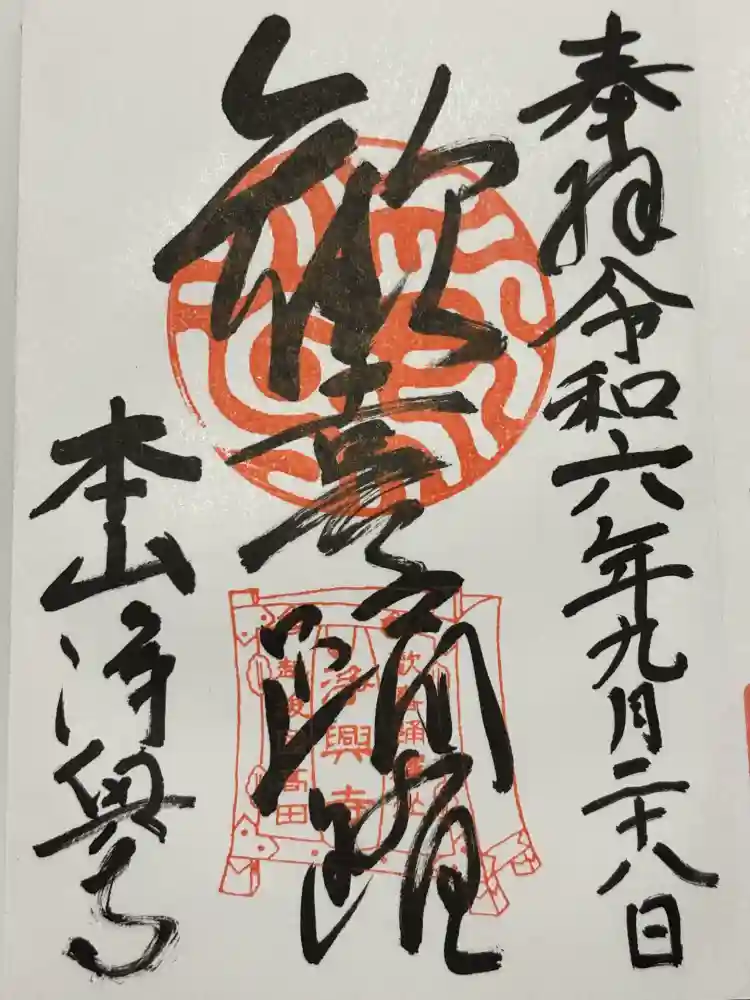 奉拝令和六年九月二十八日
歓喜踊躍
浄興寺
本山浄興寺